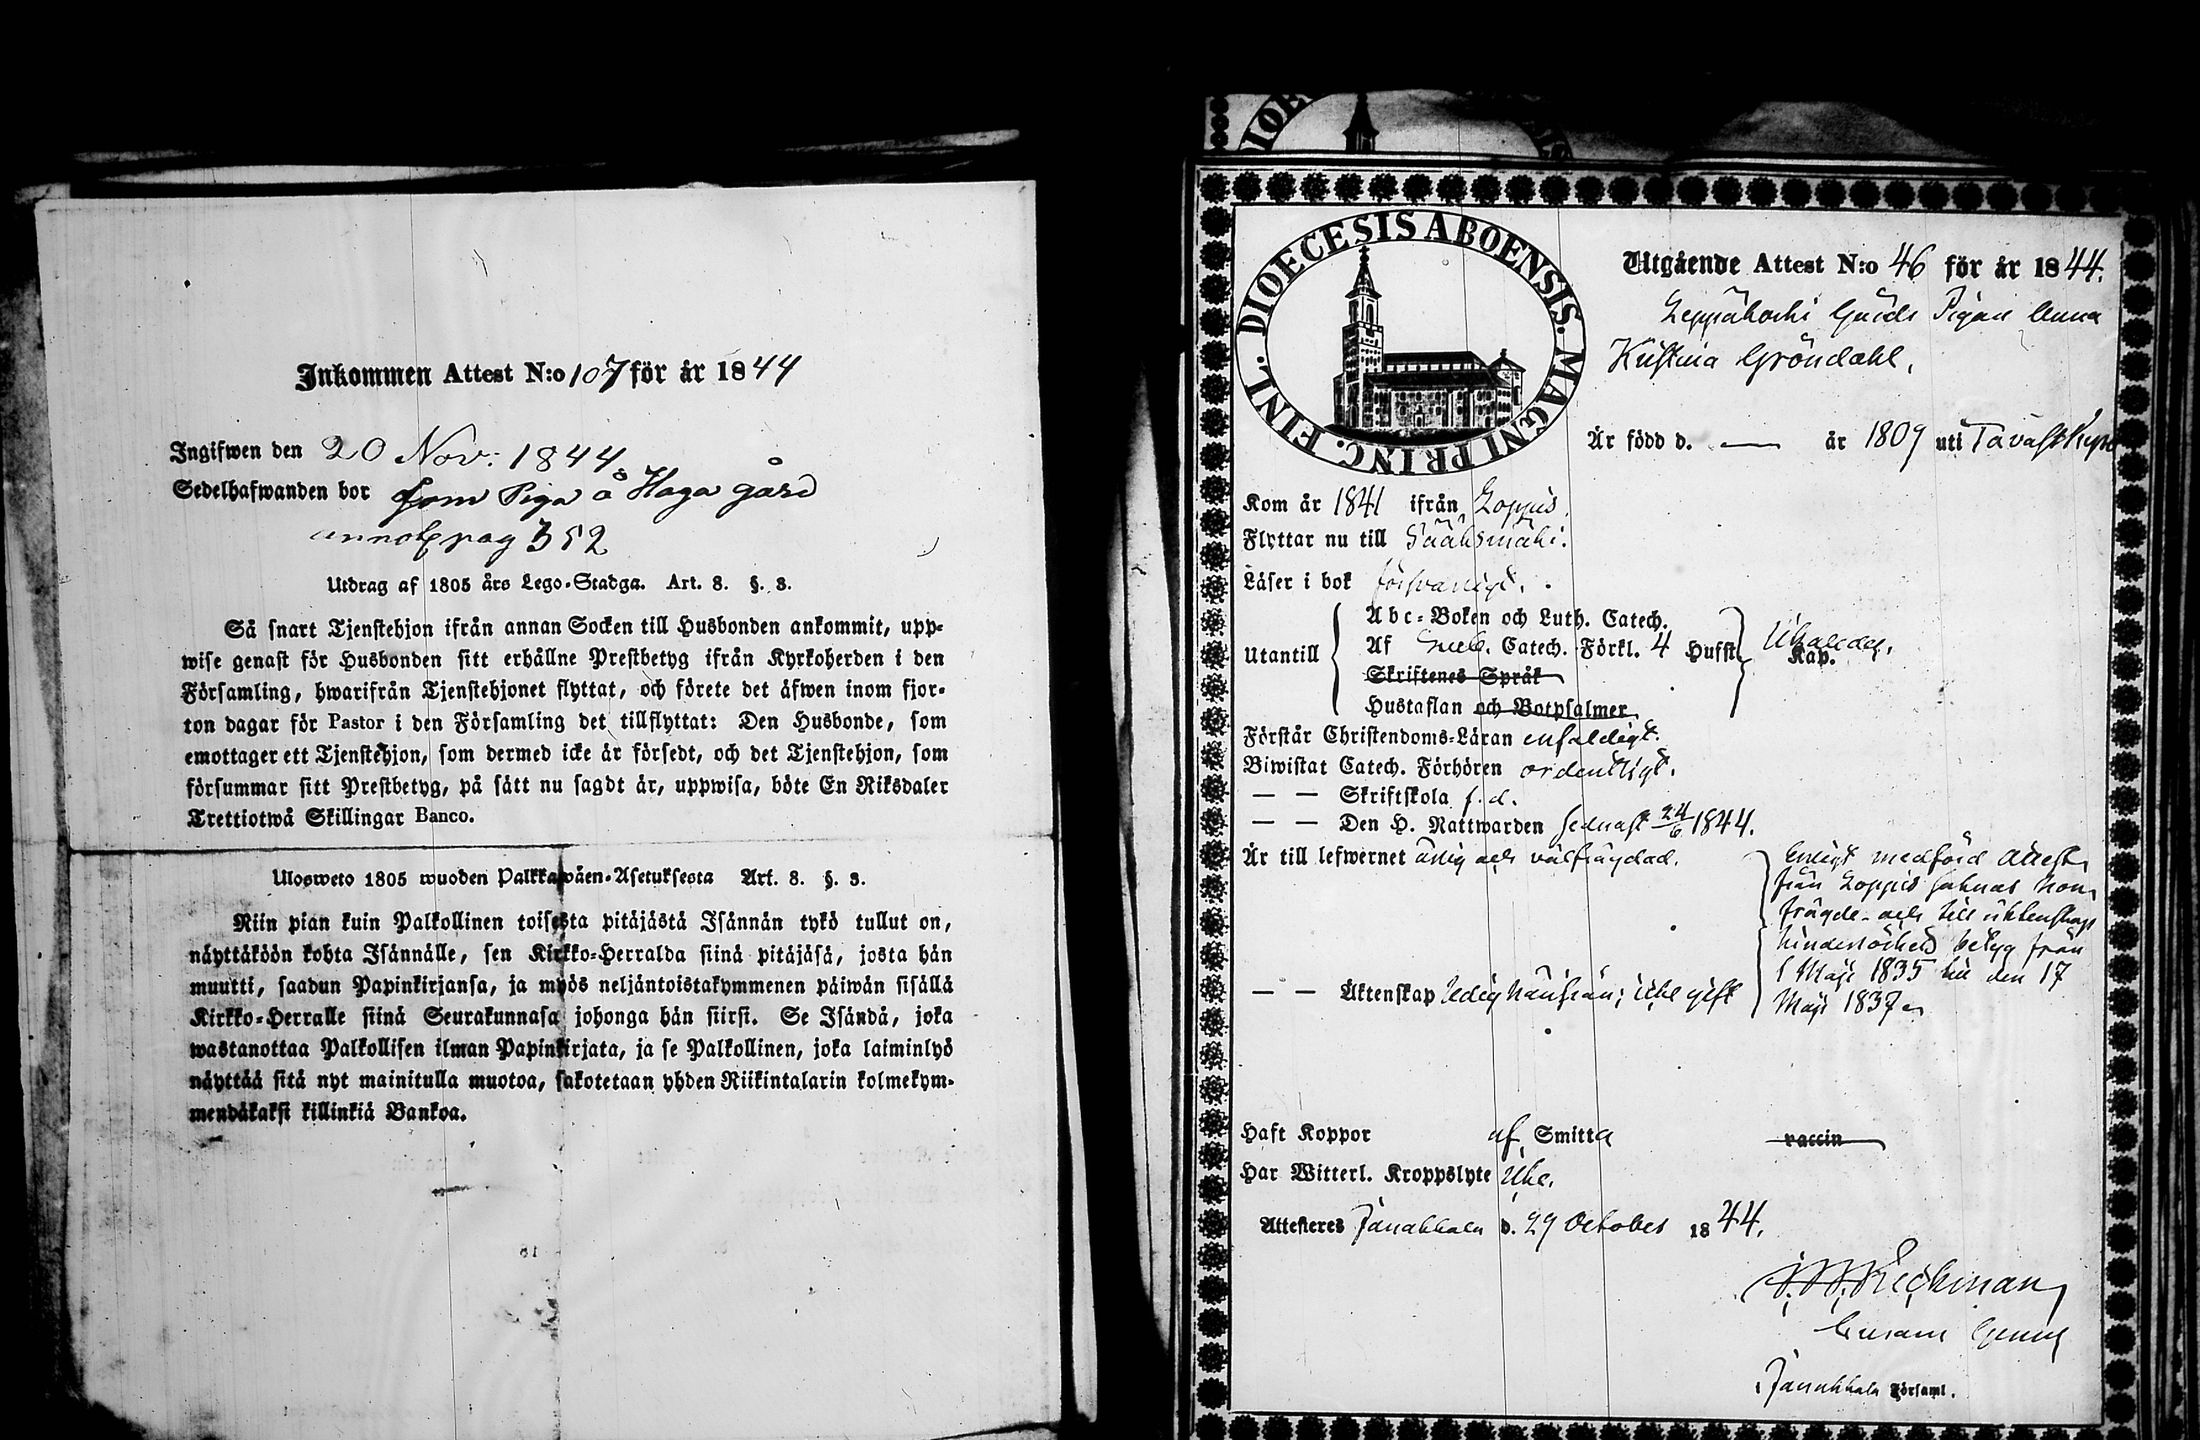 Inkommen Attest N:o 107 för år 1844
Ingifwen den 20 Nov: 1844
Sedelhafwanden bor som Piga å Haga gård
annot pag 352
Utdrag af 1805 års Lego-Stadga. Art. 8. §. 3.
Så snart Tjenstehjon ifrån annan Socken till Husbonden ankommit, upp-
wise genast för Husbonden sitt erhållne Prestbetyg ifrån Kyrkoherden i den
Församling, hwarifrån Tjenstehjonet flyttat, och förete det äfwen inom fjor-
ton dagar för Pastor i den Församling det tillflyttat: Den Husbonde, som
emottager ett Tjenstehjon, som dermed icke är försedt, och det Tjenstehjon, som
försummar sitt Prestbetyg, på sätt nu sagdt är, uppwisa, böte En Riksdaler
Trettiotwå Skillingar Banco.
Ulosweto 1805 wuoden Palkkawäen-Asetuksesta Art. 8. §. 3.
Niin pian kuin Palkollinen toisesta pitäjästä Isännän tykö tullut on,
näyttäköön kohta Isännälle, sen Kirkko-Herralda siinä pitäjäsä, josta hän
muutti, saadun Papinkirjansa, ja myös neljäntoistakymmenen päiwän sisällä
Kirkko-Herralle siinä Seurakunnasa johonga hän siirsi. Se Isändä, joka
wastanottaa Palkollisen ilman Papinkirjata, ja se Palkollinen, joka laiminlyö
näyttää sitä nyt mainitulla muotoa, sakotetaan yhden Riikintalarin kolmekym-
mendäkaksi killinkiä Bankoa.
DIOECESIS ABOENSIS. MAGNI PRINC. FINL.
Utgående Attest N:o 46 för år 1844.
Leppäkoski Gårds Pigan Anna
Kristina Gröndahl.
Är född d. — år 1809 uti Tavastkyro
Kom år 1841 ifrån Loppis.
Flyttar nu till Sääksmäki.
Läser i bok försvarligt.
Abc-Boken och Luth. Catech.
Utantill Af Sveb. Catech. Förkl. 4 Hufst. Kap.
Skriftenes Språk
Hustaflan och Botpsalmer
Förstår Christendoms-Läran enfaldigt.
Biwistat Catech. Förhören ordentligt.
— — Skriftskola f. d.
— — Den H. Nattwarden sednast 24/6 1844.
Är till lefwernet ärlig och välfrägdad.
Enligt medförd attest
från Loppis saknas hon
frägde- och till äktenskap
hinderlöshets betyg från
1 Maji 1835 till den 17
Maji 1837
— — Äktenskap ledig härifrån; icke gift
Haft Koppor af Smitta vaccin
Har Witterl. Kroppslyte Icke.
Attesteres Janakkala d. 29 October 1844.
Janakkala Församl.